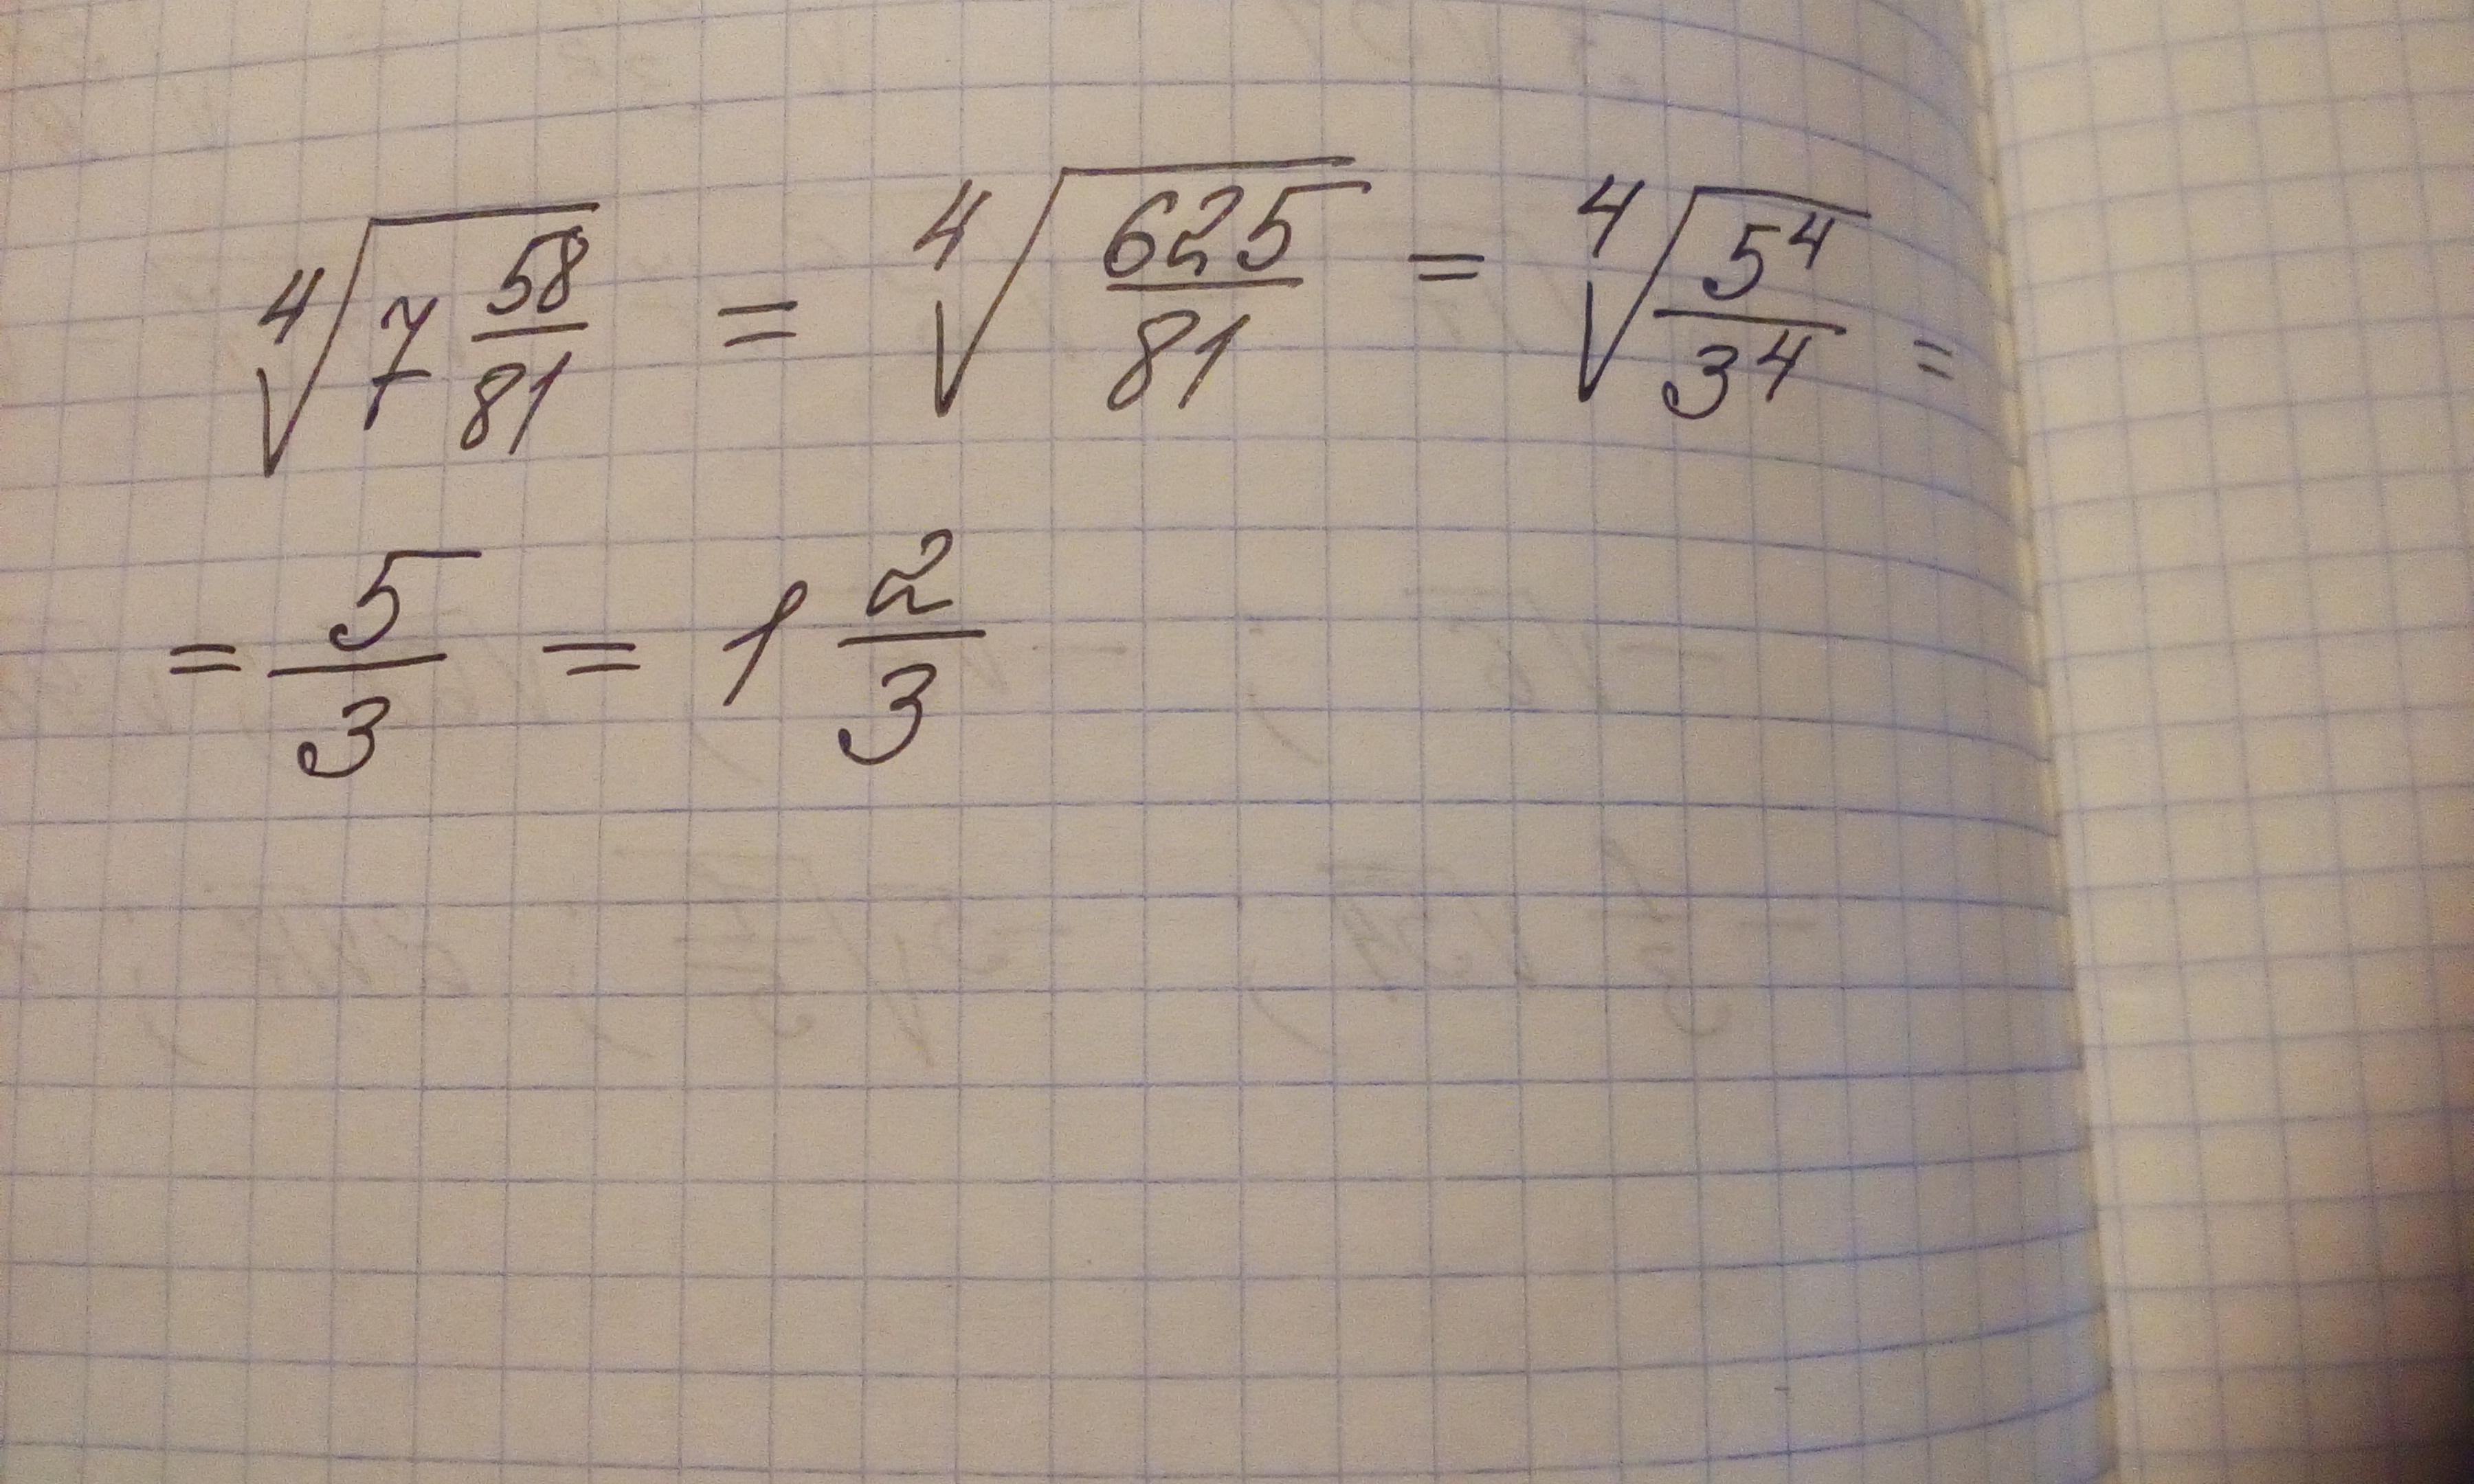 ⁴√(7 58/81) = ⁴√(625/81) = ⁴√(5⁴/3⁴) =
= 5/3 = 1 2/3